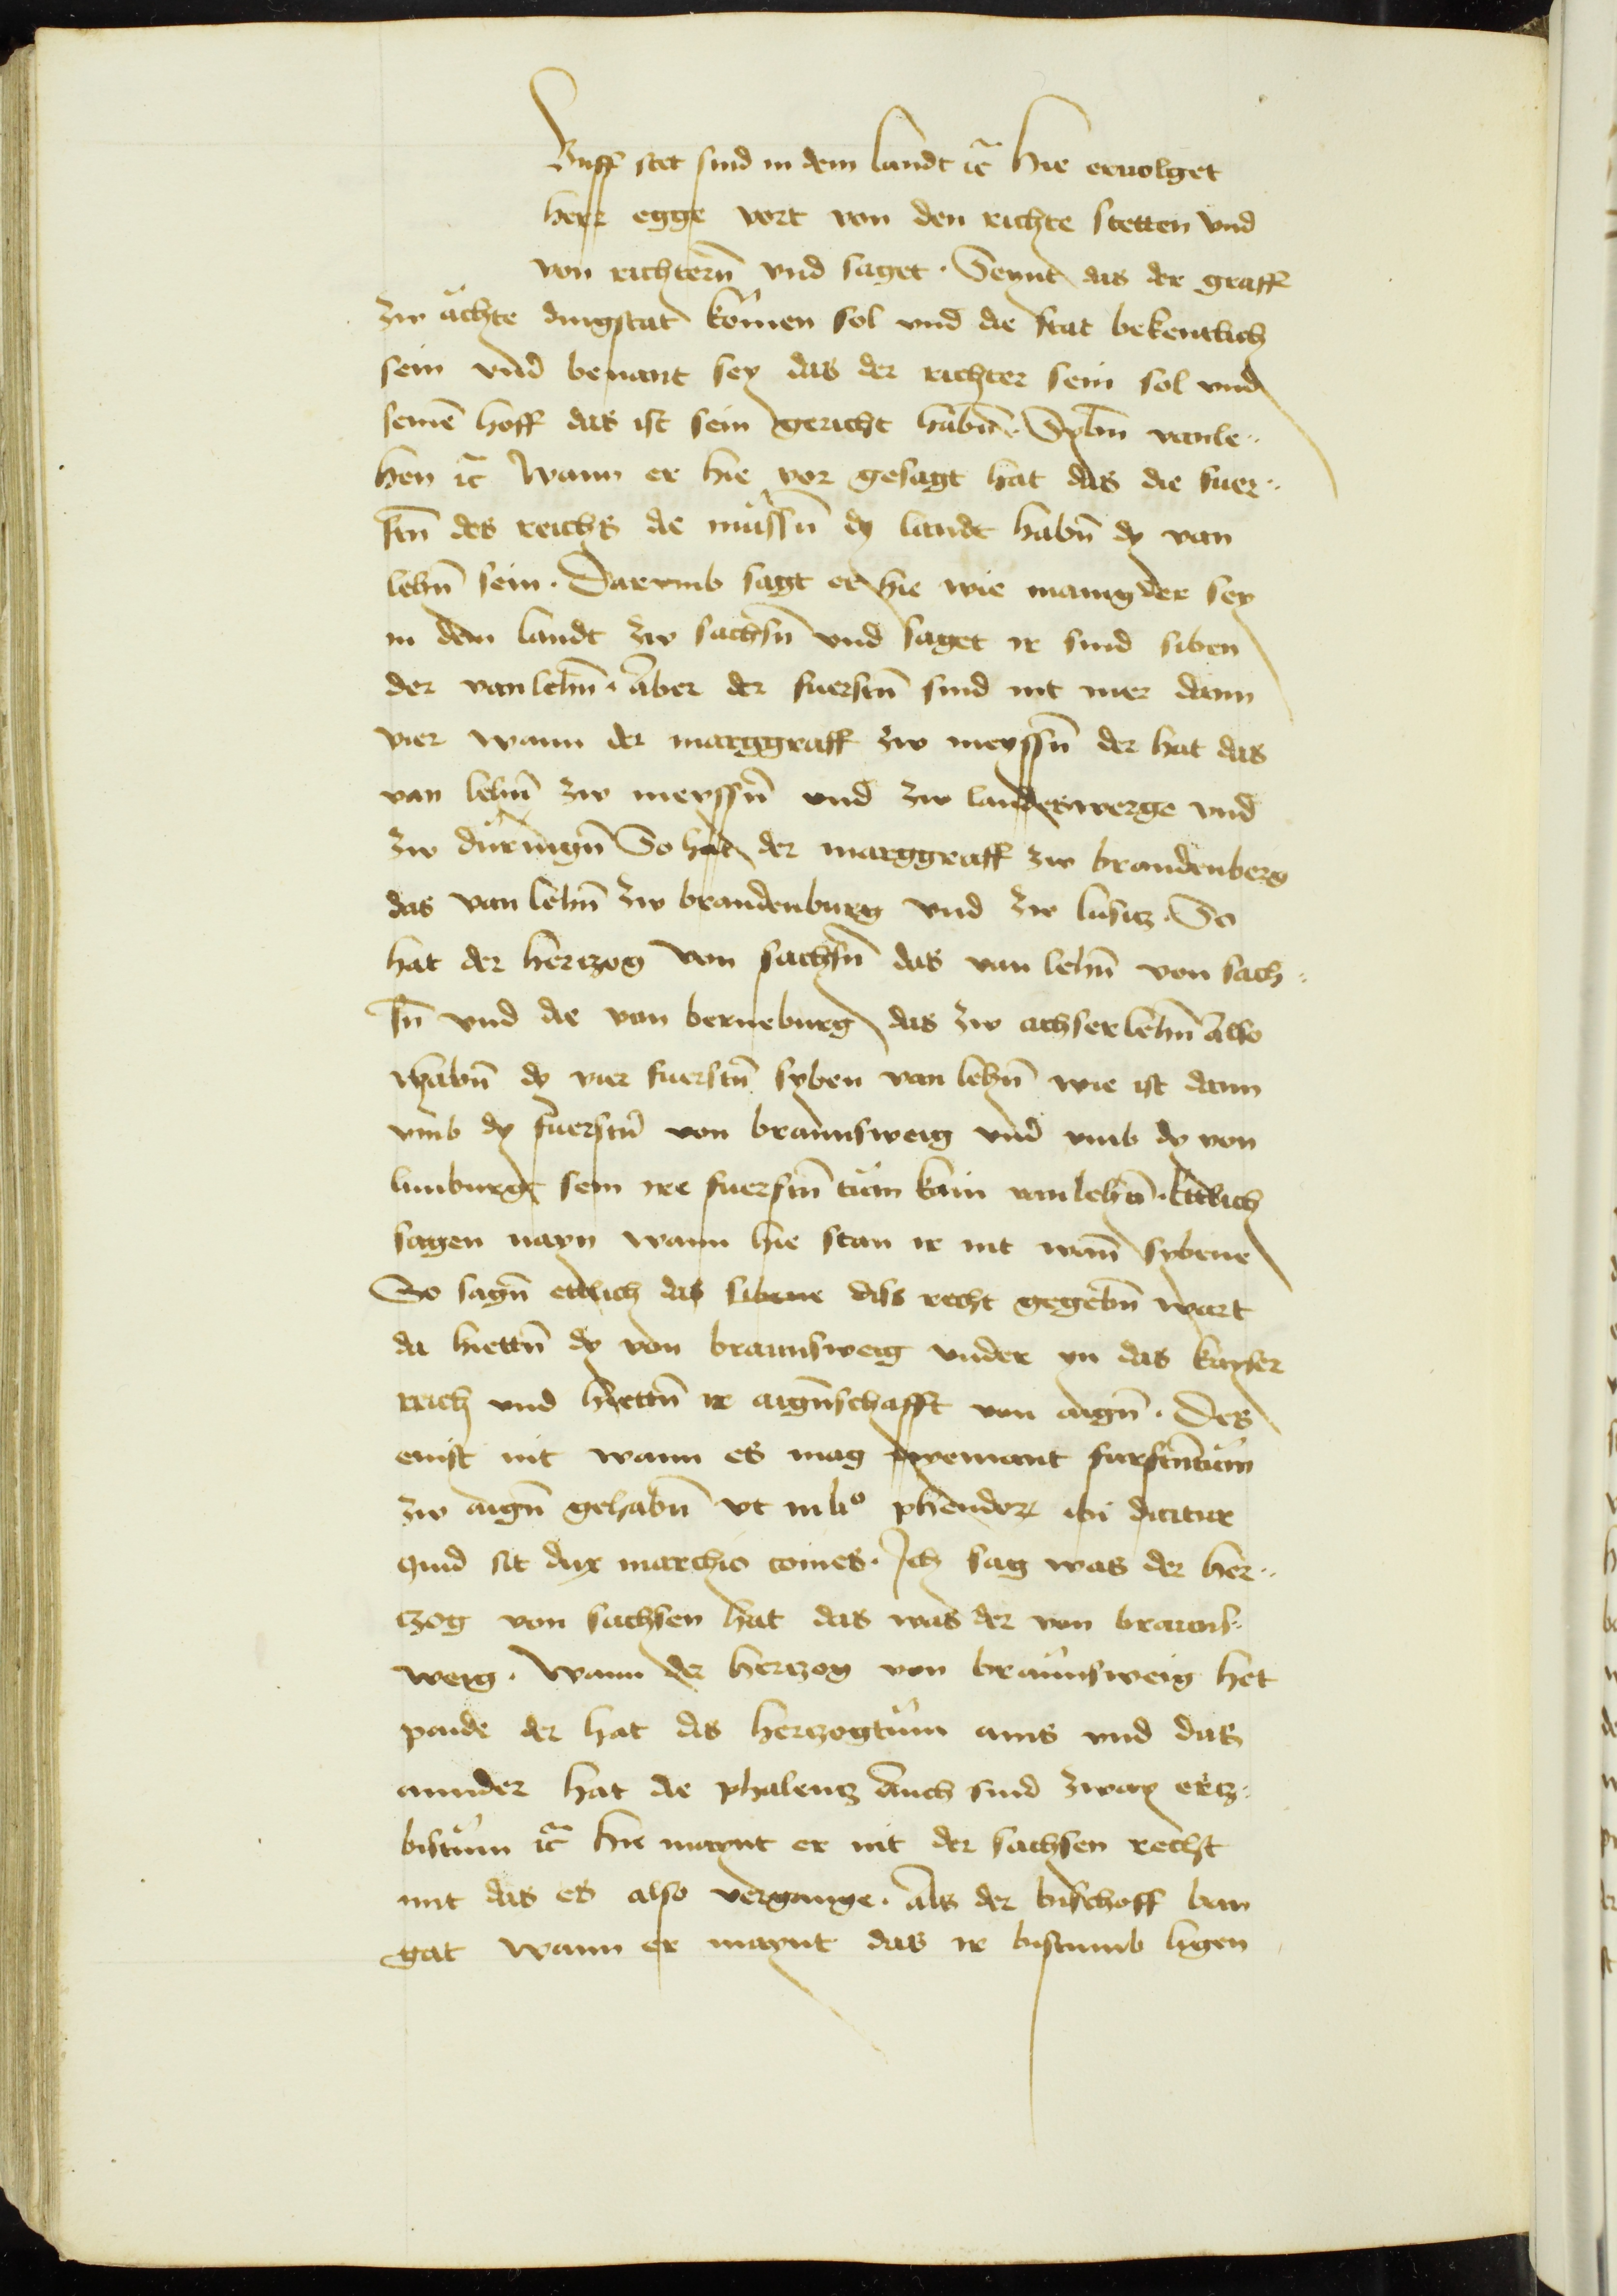 Vnff stet sind in dem landt ꝛc̃ hie ervolget
herr egge vort von den richte stetten vnd
von richterñ vnd saget · Seynt das der graff
zw ächte dingstat kömen sol vnd die stat bekentlich
sein vnd benant sey das der richter sein sol vnd
seinē hoff das ist sein gericht habñ · Sybñ vanle-
hen ꝛc̃ Wann er hie vor gesagt hat das die fuer-
stñ des reichs die müssñ dy landt habñ dy van
lehñ sein · Darvmb sagt er hie wie manig der sey
in dem landt zw sachsñ vnd saget ir sind siben
der vanlehñ · Aber der fuerstñ sind nit mer dann
vier wann der marggraff zw meyssñ der hat das
van lehñ zw meyssñ vnd zw landeswerge vnd
zw düringñ So hat der marggraff zw brandenberg
das van lehñ zw brandenburg vnd zw lusicz · So
hat der herczog von sachsñ das van lehñ von sach-
sñ vnd die von berneburg das zw achserlehñ also
habñ dy vier fuerstñ syben van lehñ wie ist dann
vmb dy fuerstñ von braunsweig vnd vmb dy von
lunburge sein ire fuerstñ tum kain vanlehñ · Ettlich
sagen nayn wann hie stan ir nit wañ sybene
So sagñ ettlich das sibene diss recht gegebñ wart
da hiettñ dy von braunsweig vnder yn das kayser
reich vnd hiettñ ir aigñschafft von aigñ · Des
enist nit wann es mag nyemant furstñtüm
zw aigñ gehabñ vt in li° phendor ibi dicitur
quid sit dux marchio comes · Ich sag was der her-
czog von sachsen hat das was der von brauns-
weig · Wann der herczog von braunsweig het
paide der hat das herczogtüm ains vnd das
annder hat die phalencz Auch sind zway ercz-
bistüm ꝛc̃ hie maynt er nit der sachsen recht
nit das es also vergange · Als der bischoff ban
gat wann er maynt das ir bistumb ligen